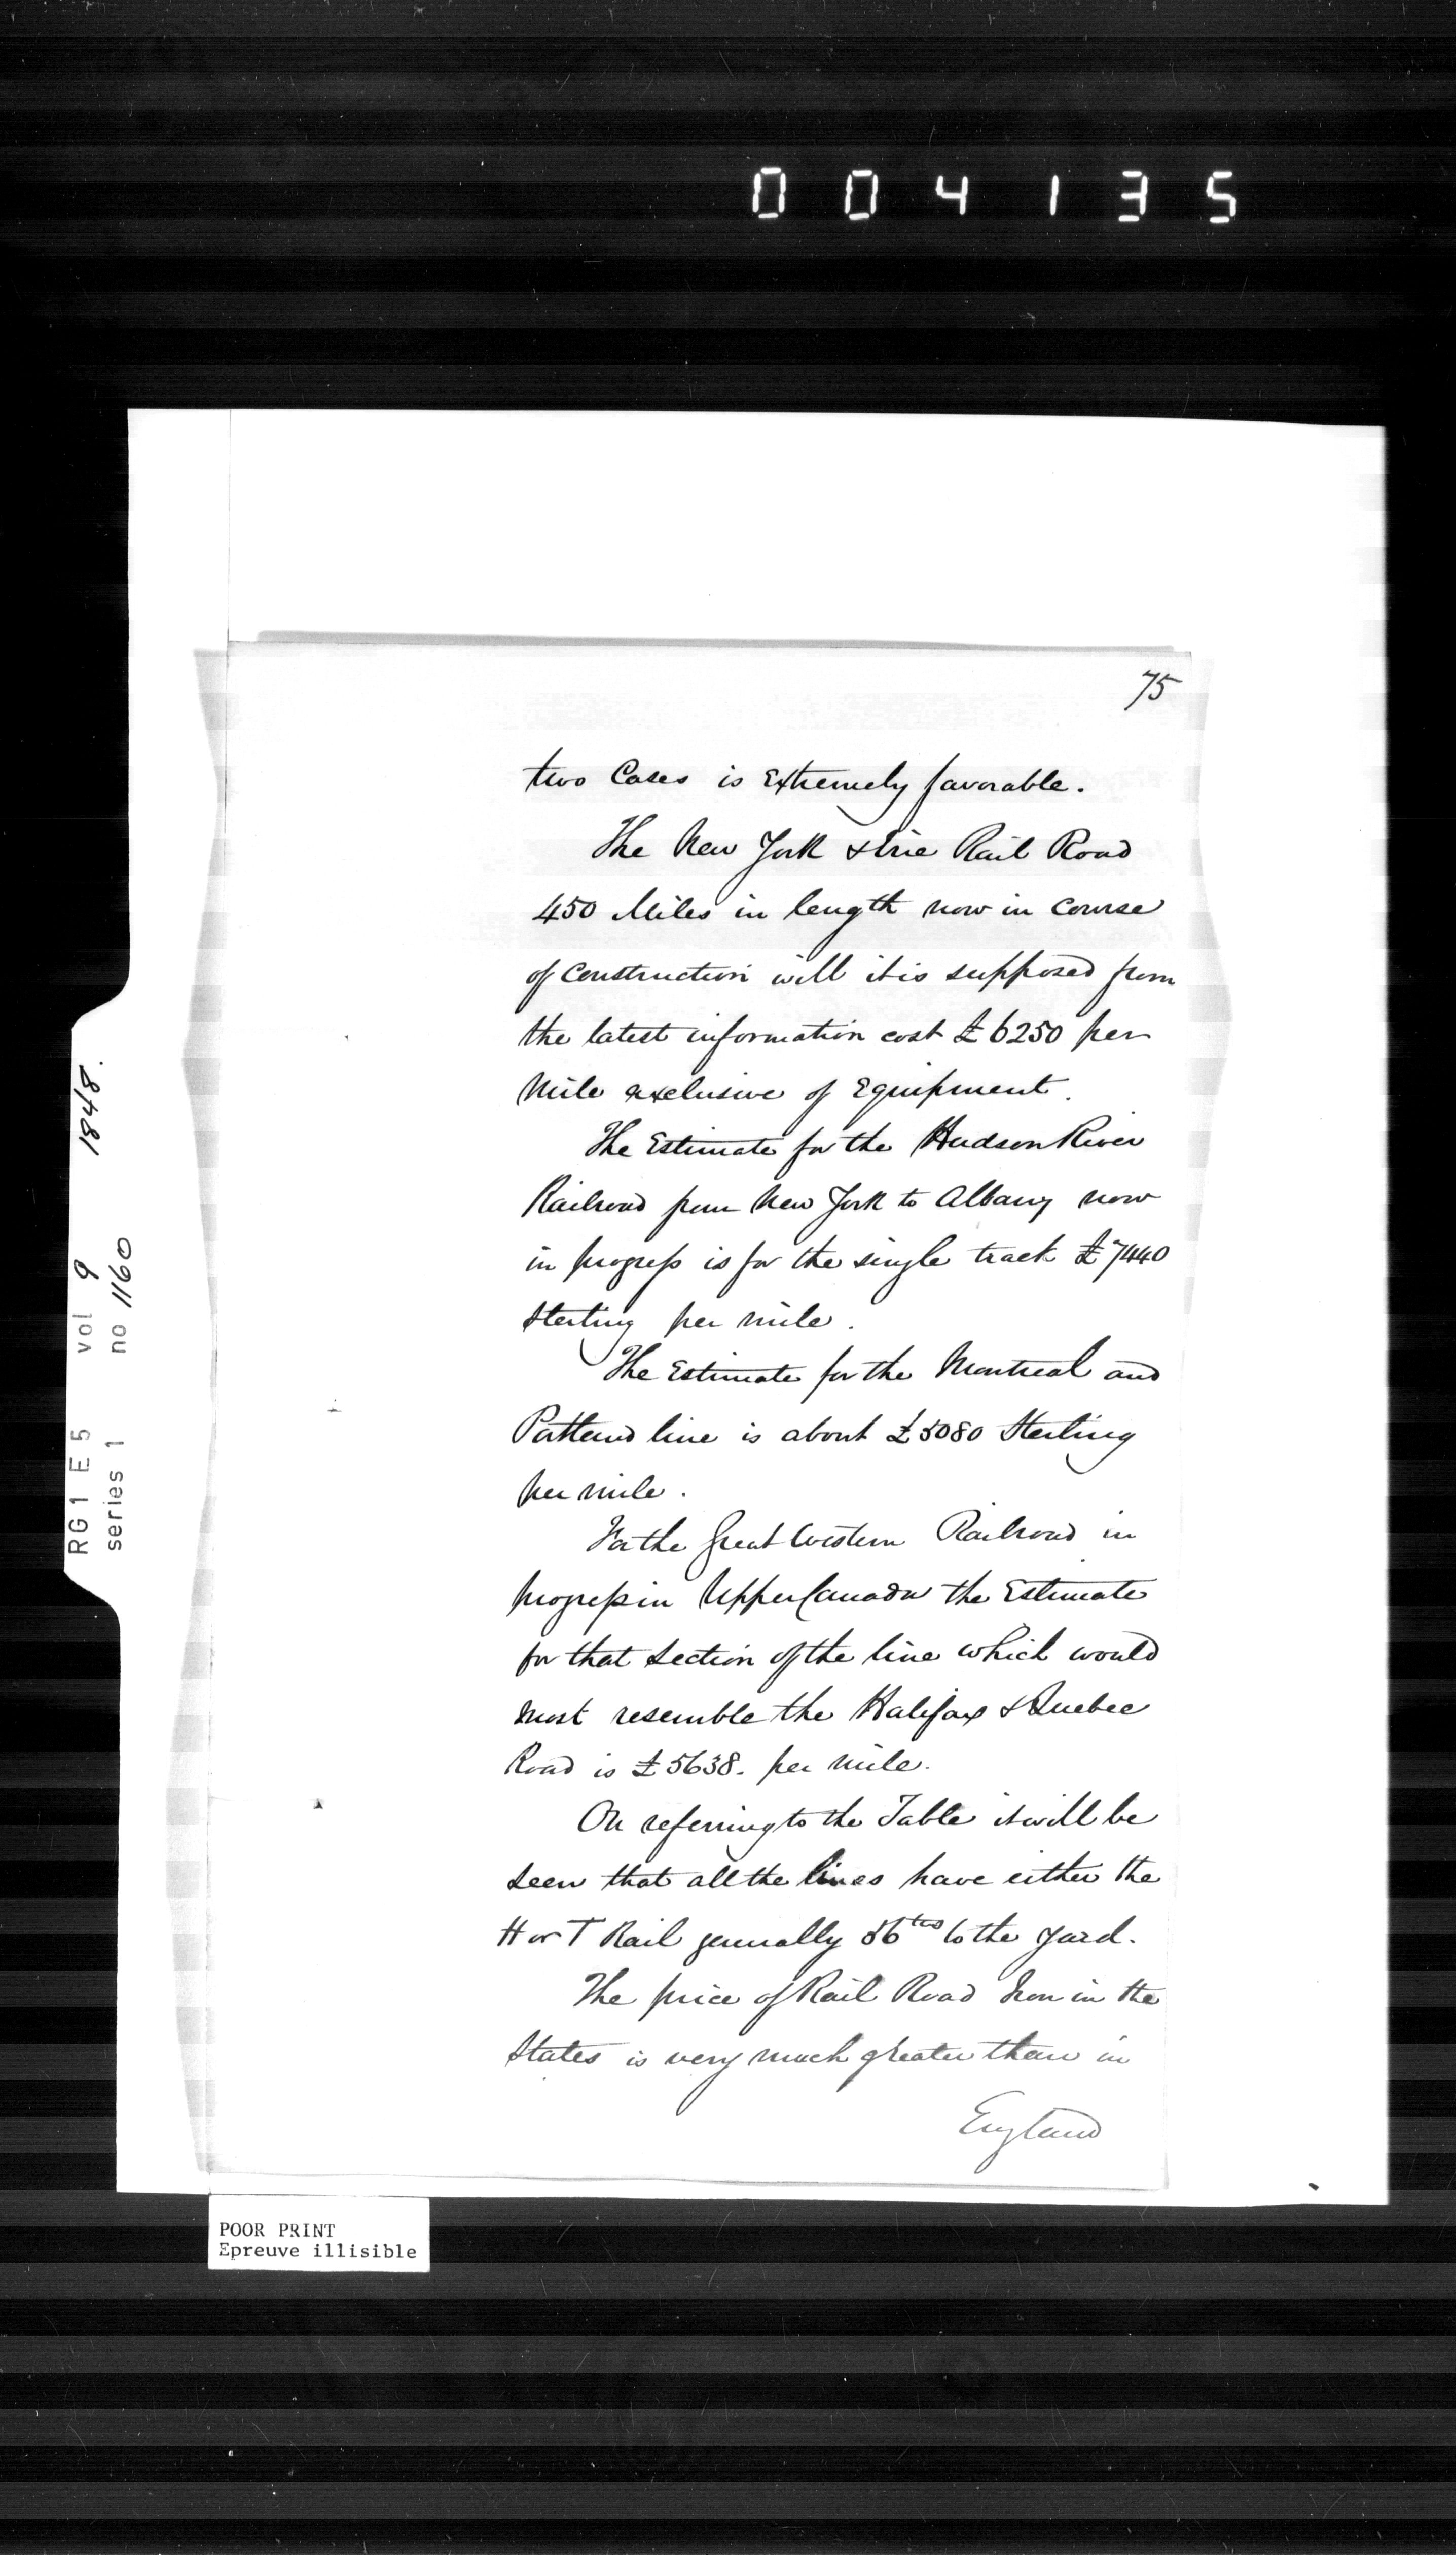 004135
75
two Cases is Extremely favorable.
The New York & Erie Rail Road
450 Miles in length now in Course
of Construction will it is supposed from
the latest information cost £6250 per
Mile exclusive of Equipment.
The Estimate for the Hudson River
Railroad from New York to Albany now
in progress is for the single track £7440
Sterling per mile.
The Estimate for the Montreal and
Portland line is about £5080 Sterling
per mile.
For the Great Western Railroad in
progress in Upper Canada the Estimate
for that Section of the line which would
most resemble the Halifax & Quebec
Road is £5638. per mile.
On referring to the Table it will be
seen that all the lines have either the
H or T Rail generally 56 lbs to the yard.
The price of Rail Road Iron in the
States is very much greater than in
England
RG1 E5 vol 9 1848.
series 1 no 1160
POOR PRINT
Epreuve illisible